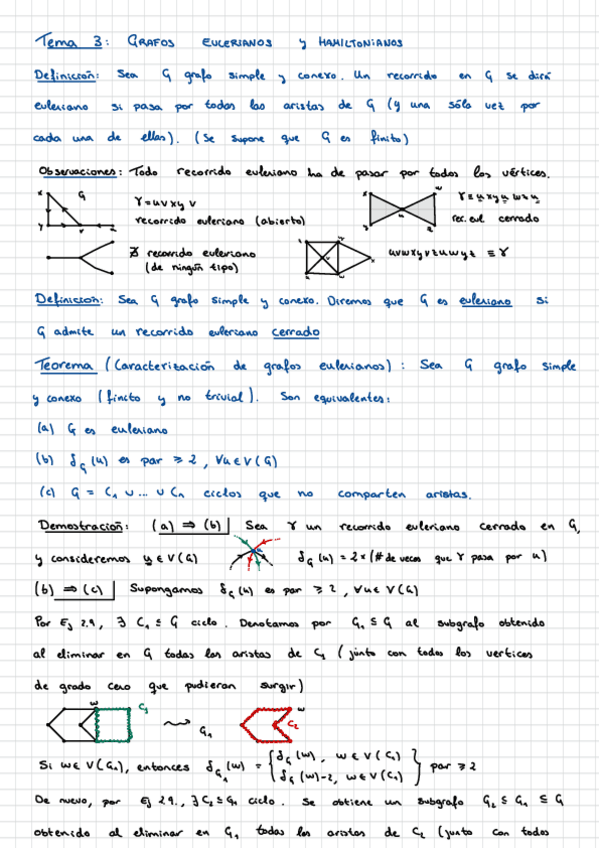 Tema 3: GRAFOS EULERIANOS y HAMILTONIANOS
Definición: Sea G grafo simple y conexo. Un recorrido en G se dirá
euleriano si pasa por todas las aristas de G (y una sóla vez por
cada una de ellas). (Se supone que G es finito)
Observaciones: Todo recorrido euleriano ha de pasar por todos los vértices.
γ = uvxyv
recorrido euleriano (abierto)
rec. eul. cerrado
∄ recorrido euleriano
(de ningún tipo)
uvwxyvzuwyz ≡ γ
Definición: Sea G grafo simple y conexo. Diremos que G es euleriano si
G admite un recorrido euleriano cerrado
Teorema (Caracterización de grafos eulerianos): Sea G grafo simple
y conexo (finito y no trivial). Son equivalentes:
(a) G es euleriano
(b) δG(u) es par ≥ 2, ∀u∈V(G)
(c) G = C1 ∪ ... ∪ Cn ciclos que no comparten aristas.
Demostración: (a) ⇒ (b) Sea γ un recorrido euleriano cerrado en G,
y consideremos u∈V(G) δG(u) = 2×(# de veces que γ pasa por u)
(b) ⇒ (c) Supongamos δG(u) es par ≥ 2, ∀u∈V(G)
Por Ej 2.9, ∃ C1 ≤ G ciclo. Denotamos por G1 ≤ G al subgrafo obtenido
al eliminar en G todas las aristas de C1 (junto con todos los vertices
de grado cero que pudieran surgir)
w C1 G1 w C2
Si w∈V(G1), entonces δG1(w) = { δG(w), w∉V(C1)
δG(w)-2, w∈V(C1) } par ≥ 2
De nuevo, por Ej 2.9., ∃ C2 ≤ G1 ciclo. Se obtiene un subgrafo G2 ≤ G1 ≤ G
obtenido al eliminar en G1 todas las aristas de C2 (junto con todos